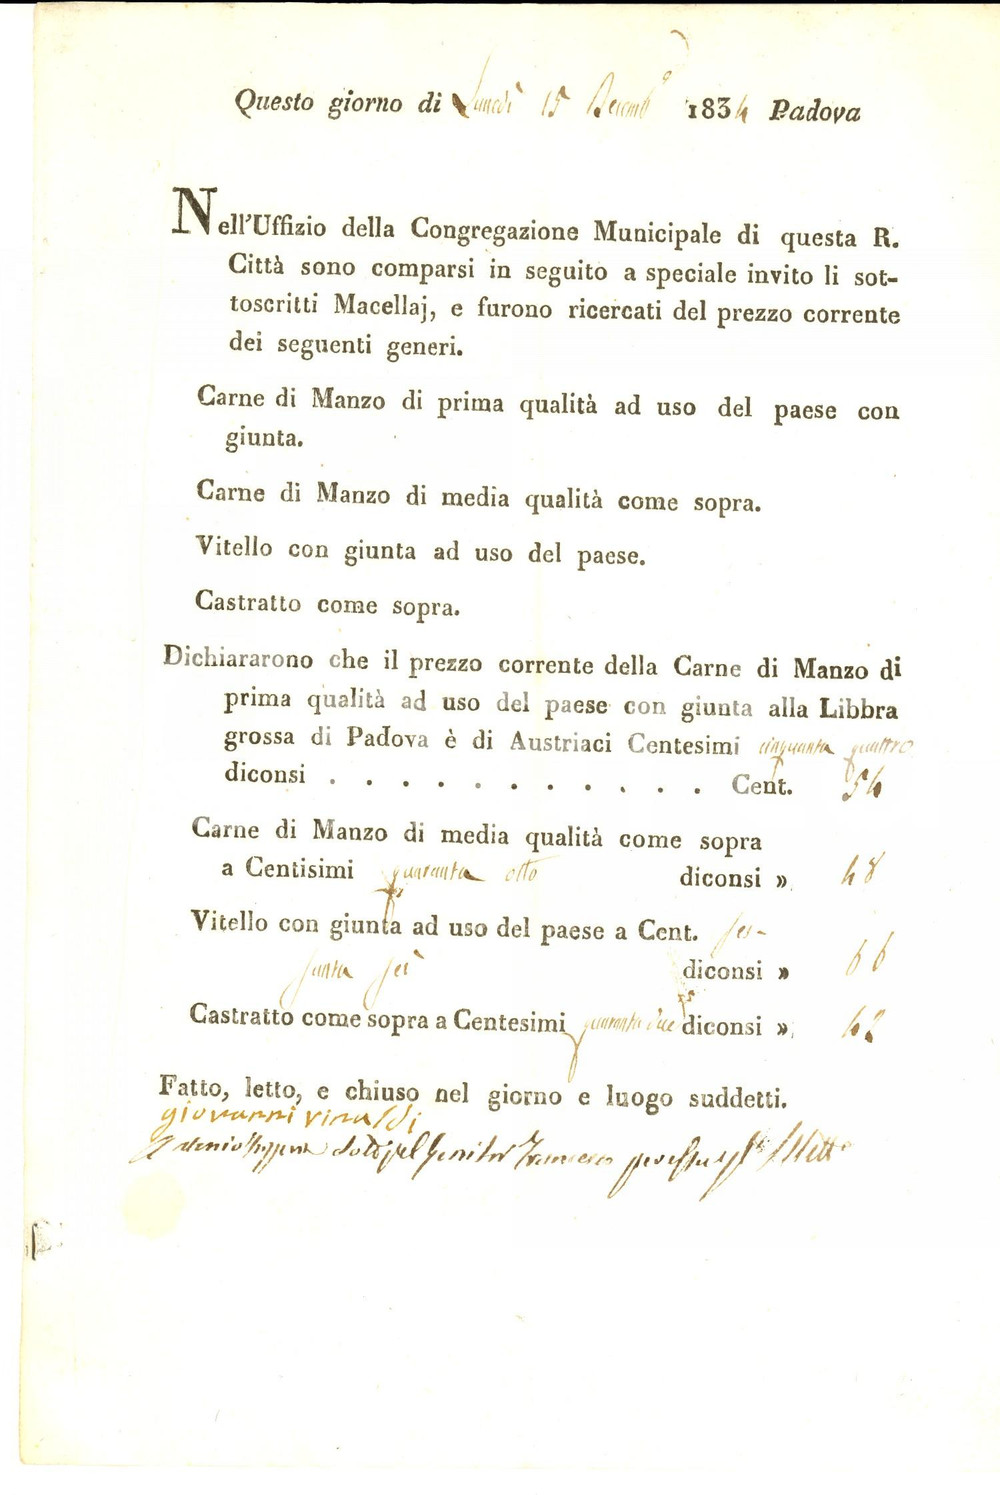 Questo giorno di Lunedì 15 Decembe 1834 Padova
Nell'Uffizio della Congregazione Municipale di questa R.
Città sono comparsi in seguito a speciale invito li sot-
toscritti Macellaj, e furono ricercati del prezzo corrente
dei seguenti generi.
Carne di Manzo di prima qualità ad uso del paese con
giunta.
Carne di Manzo di media qualità come sopra.
Vitello con giunta ad uso del paese.
Castratto come sopra.
Dichiararono che il prezzo corrente della Carne di Manzo di
prima qualità ad uso del paese con giunta alla Libbra
grossa di Padova è di Austriaci Centesimi cinquanta quattro
diconsi . . . . . . . . . . . Cent. 54
Carne di Manzo di media qualità come sopra
a Centisimi quaranta otto diconsi » 48
Vitello con giunta ad uso del paese a Cent. ses-
santa sei diconsi » 66
Castratto come sopra a Centesimi quaranta due diconsi » 42
Fatto, letto, e chiuso nel giorno e luogo suddetti.
giovanni vivaldi
Francesco